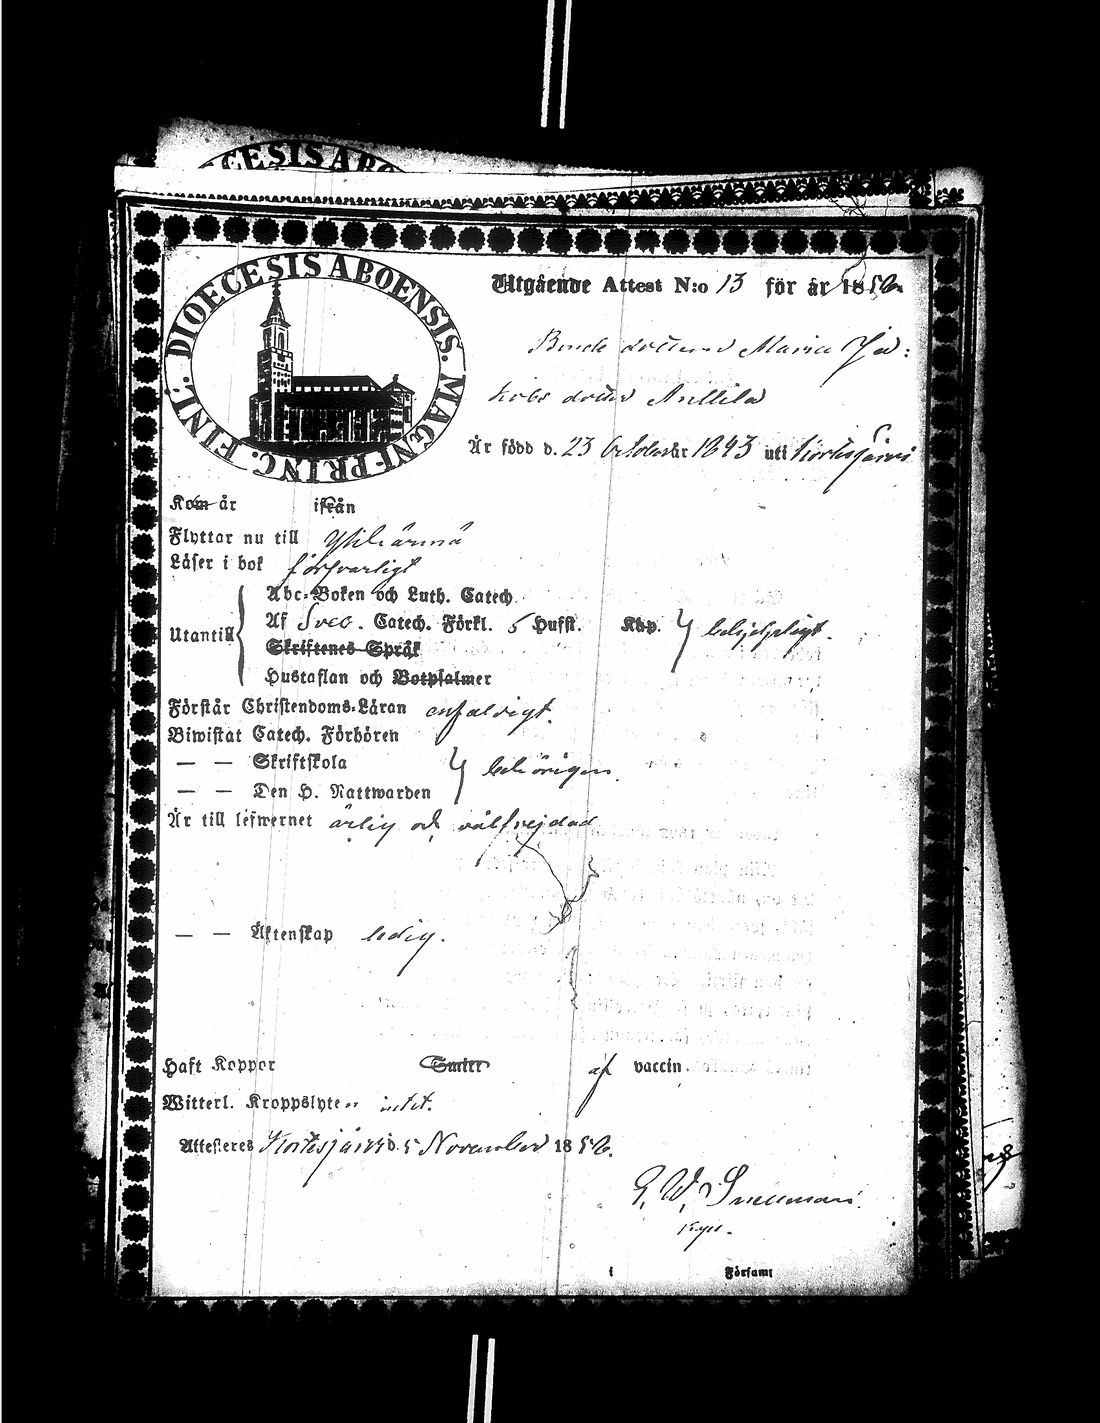 DIŒCESIS ABO
DIOECESIS ABOENSIS. MAGNI-PRINC. FINL.
Utgående Attest N:o 13 för år 1856
Bonde dottren Maria Ja:
kobs dotter Anttila
Är född d. 23 October år 1843 uti Kortesjärvi
Kom år ifrån
Flyttar nu till Ylihärmä
Läser i bok försvarligt
Abc-Boken och Luth. Catech.
Af Sveb. Catech. Förkl. 5 Hufst. Kap. behjelpligt.
Utantill
Skriftenes Språk
Hustaflan och Botpsalmer
Förstår Christendoms-Läran enfaldigt.
Biwistat Catech. Förhören
— — Skriftskola
behörigen.
— — Den H. Nattwarden
Är till lefwernet ärlig och välfrejdad
— — Äktenskap ledig.
Haft Koppor Smitt af vaccin.
Witterl. Kroppslyten intet.
Attesteres Kortesjärvi d. 5 November 1856.
G. W. Snellman.
i Församl